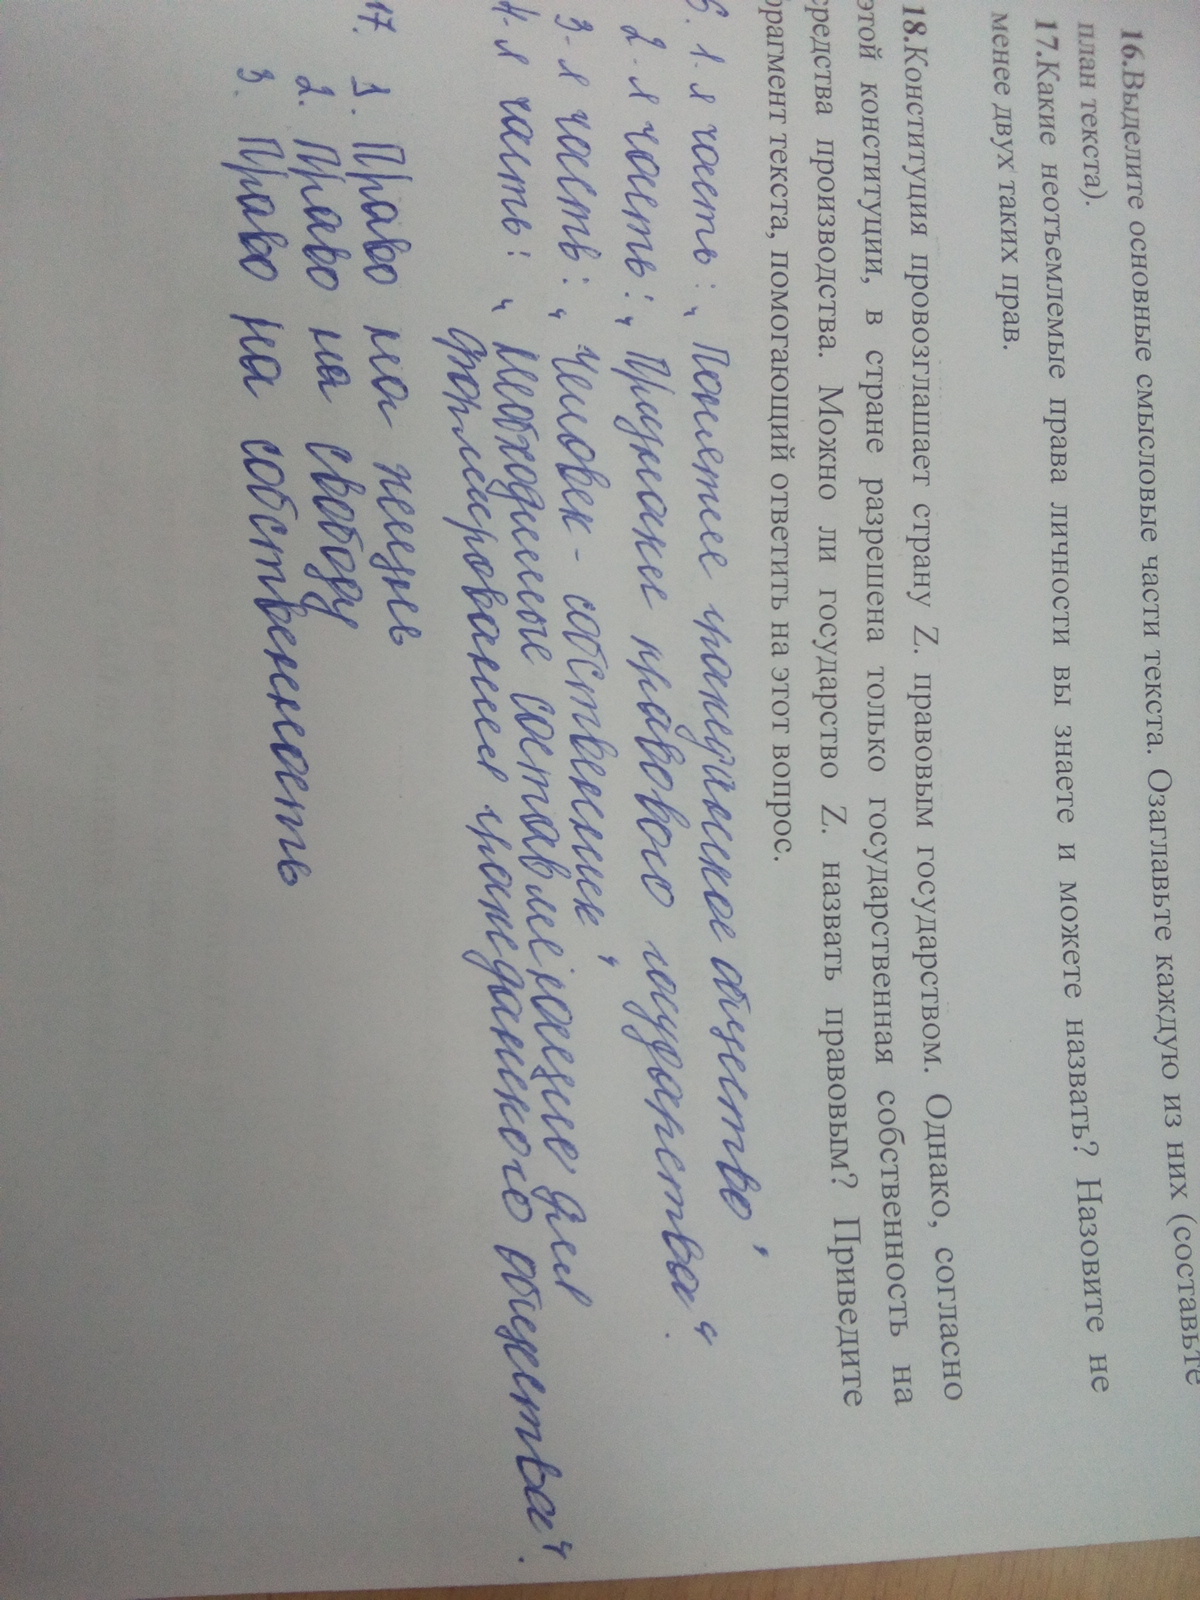 16.Выделите основные смысловые части текста. Озаглавьте каждую из них (составьте
план текста).
17.Какие неотъемлемые права личности вы знаете и можете назвать? Назовите не
менее двух таких прав.
18.Конституция провозглашает страну Z. правовым государством. Однако, согласно
этой конституции, в стране разрешена только государственная собственность на
средства производства. Можно ли государство Z. назвать правовым? Приведите
фрагмент текста, помогающий ответить на этот вопрос.
6. 1-я часть: „Понятие гражданское общество"
2-я часть: „Признание правового государства".
3-я часть: „Человек - собственник"
4-я часть: „Необходимые составляющие для
формирования гражданского общества".
17. 1. Право на жизнь
2. Право на свободу
3. Право на собственность